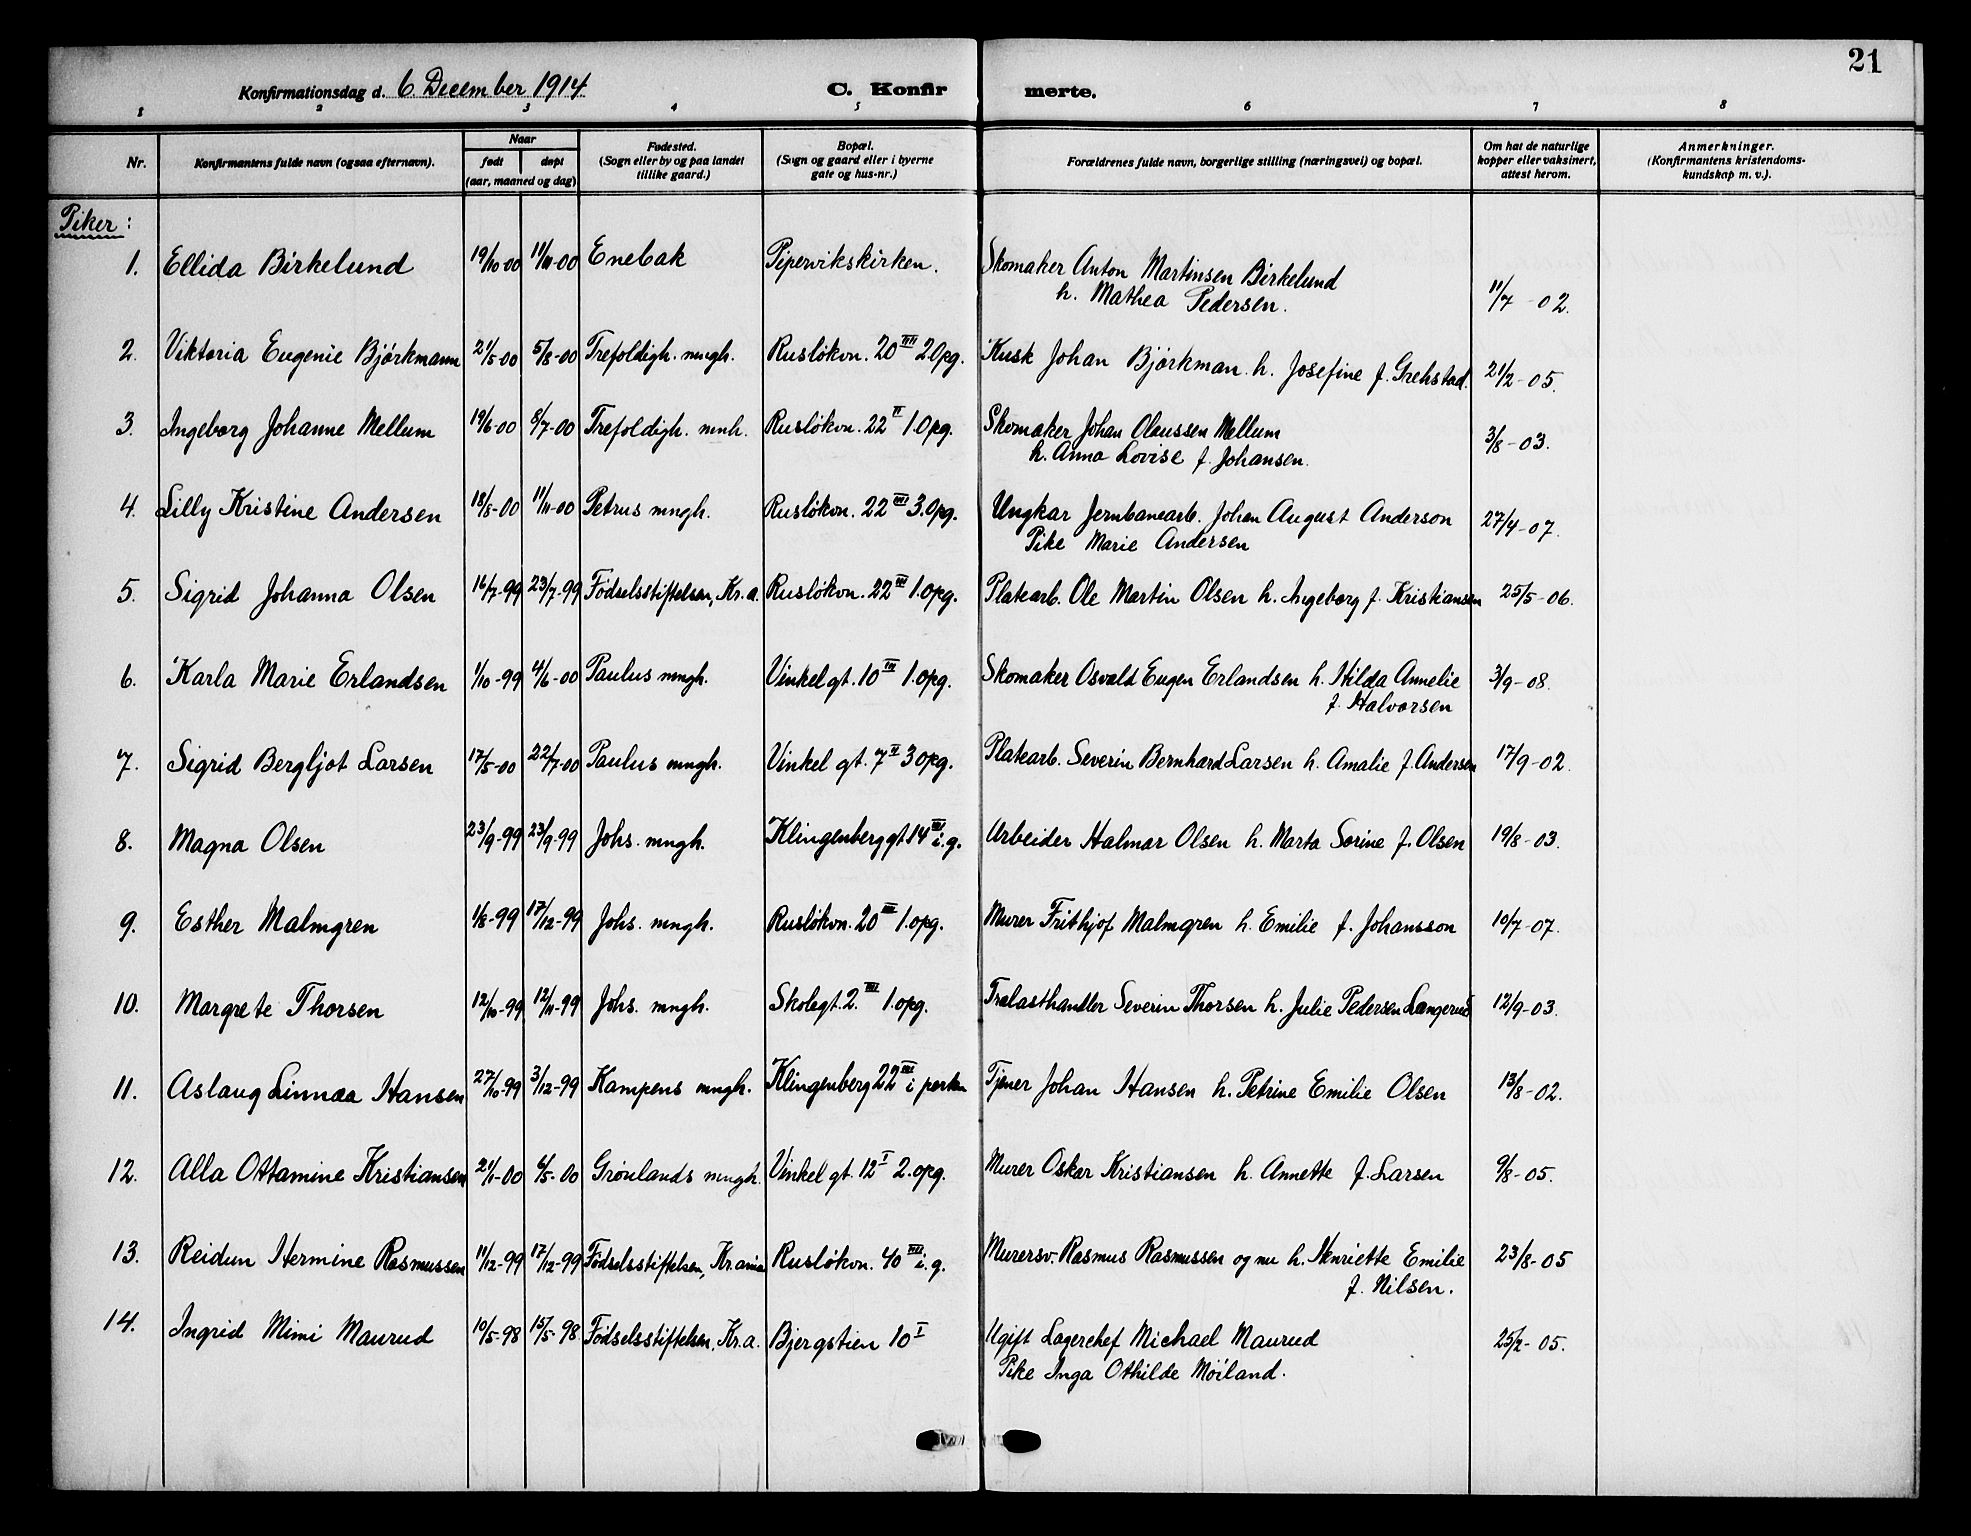 21
Konfirmationsdag d. 6 December 1914 C. Konfirmerte.
1 2 3 4 5 6 7 8
Nr. Konfirmantens fulde navn (ogsaa efternavn). Naar født døpt (aar, maaned og dag) Fødested. (Sogn eller by og paa landet tillike gaard.) Bopæl. (Sogn og gaard eller i byerne gate og hus-nr.) Forældrenes fulde navn, borgerlige stilling (næringsvei) og bopæl. Om hat de naturlige kopper eller vaksinert, attest herom. Anmerkninger. (Konfirmantens kristendoms-kundskap m. v.).
Piker:
1. Ellida Birkelund 19/10-00 11/11-00 Enebak Pipervikskirken. Skomaker Anton Martinsen Birkelund
h. Mathea Pedersen. 11/7-02.
2. Viktoria Eugenie Bjørkmann 21/5-00 5/8-00 Trefoldigh. mngh. Rusløkvn. 20 III 2.Opg. Kusk Johan Bjørkman h. Josefine f. Grehstad. 21/2-05.
3. Ingeborg Johanne Mellum 19/6-00 8/7-00 Trefoldigh. mnh. Rusløkvn. 22 II 1.Opg. Skomaker Johan Olaussen Mellum
h. Anna Lovise f. Johansen. 3/8-03.
4. Lilly Kristine Andersen 18/8-00 11/11-00 Petrus mngh. Rusløkvn. 22 III 3.Opg. Ungkar Jernbanearb. Johan August Anderson
Pike Marie Andersen 27/4-07.
5. Sigrid Johanna Olsen 16/7-99 23/7-99 Fødselsstiftelsen, Kr.a. Rusløkvn. 22 III 1.opg. Platearb. Ole Martin Olsen h. Ingeborg f. Kristiansen 25/5-06.
6. Karla Marie Erlandsen 1/10-99 4/6-00 Paulus mngh. Vinkelgt. 10 III 1.opg. Skomaker Osvald Eugen Erlandsen h. Hilda Annelie
f. Halvorsen 3/9-08.
7. Sigrid Bergljot Larsen 17/5-00 22/7-00 Paulus mngh. Vinkel gt. 7 II 3 opg. Platearb. Severin Bernhard Larsen h. Amalie f. Andersen 17/9-02.
8. Magna Olsen 23/9-99 23/9-99 Johs. mngh. Klingenberggt 14 III i.g. Arbeider Halmar Olsen h. Marta Sorine f. Olsen 19/8-03.
9. Esther Malmgren 1/8-99 17/12-99 Johs. mngh. Rusløkvn. 20 III 1.opg. Murer Frithjof Malmgren h. Emilie f. Johansson 10/7-07.
10. Margrete Thorsen 12/10-99 12/11-99 Johs. mngh. Skolegt. 2. III 1.opg. Trælasthandler Severin Thorsen h. Julie Pedersen Langerud 12/9-03.
11. Aslaug Linnæa Hansen 27/10-99 3/12-99 Kampens mngh. Klingenberg 22 III i porten Tjener Johan Hansen h. Petrine Emilie Olsen 13/8-02.
12. Alla Ottamine Kristiansen 21/1-00 6/5-00 Grønlands mngh. Vinkel gt. 12 I 2.opg. Murer Oskar Kristiansen h. Annette f. Larsen 9/8-05.
13. Reidun Hermine Rasmussen 11/12-99 17/12-99 Fødselsstiftelsen, Kr.ania Rusløkvn. 40 III i.g. Murersv. Rasmus Rasmussen og nu h. Henriette Emilie
f. Nilsen. 23/8-05
14. Ingrid Mimi Maurud 10/5-98 15/5-98 Fødselsstiftelsen, Kr.a. Bjergstien 10 I Ugift Lagerchef Michael Maurud
Pike Inga Othilde Møiland. 25/2-05.